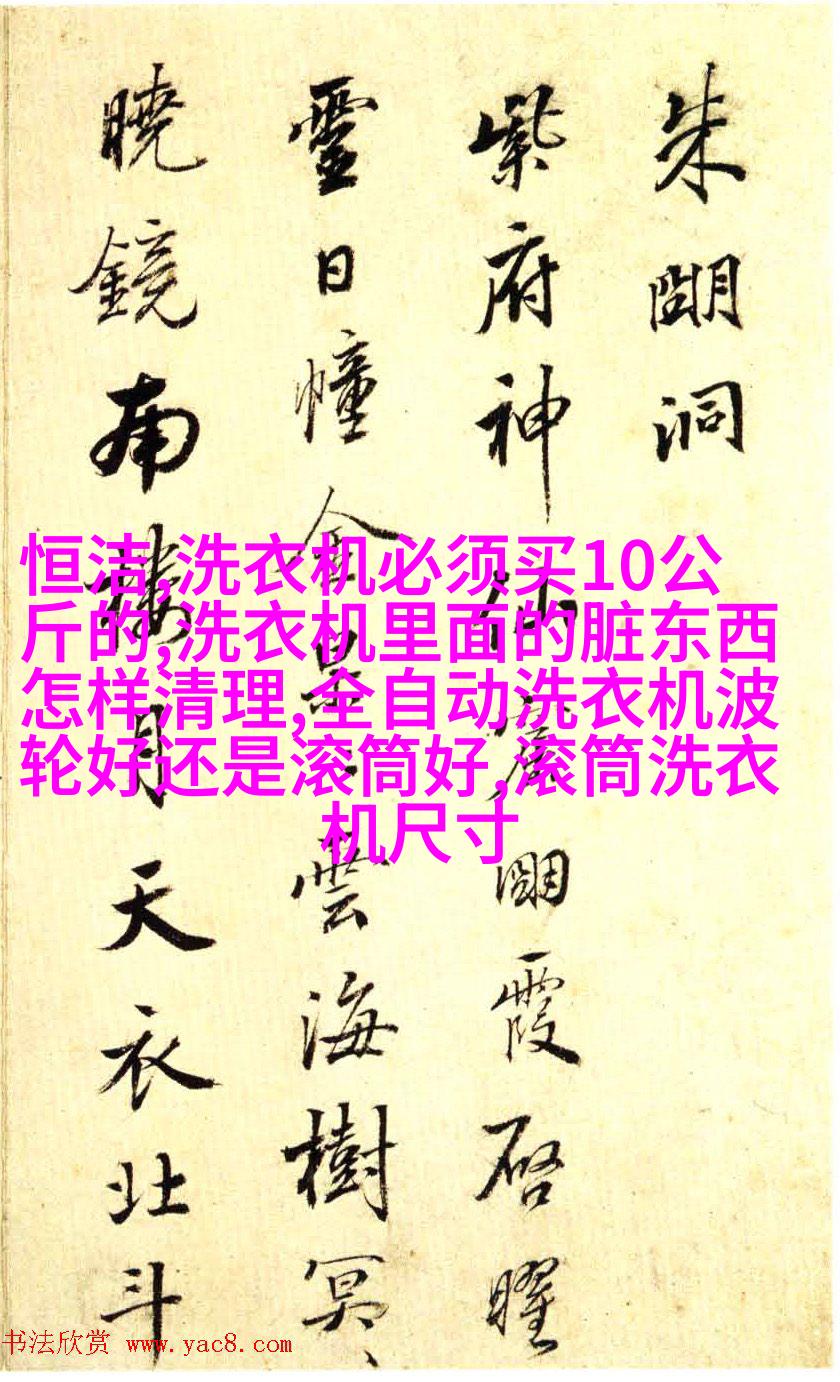 朱朙洞
紫府神仙朙霞启曜
靈日幢金雲海樹冥、
曉鏡南樓月天衣北斗
恒洁,洗衣机必须买10公
斤的,洗衣机里面的脏东西
怎样清理,全自动洗衣机波
轮好还是滚筒好,滚筒洗衣
机尺寸
书法欣赏 www.yac8.com